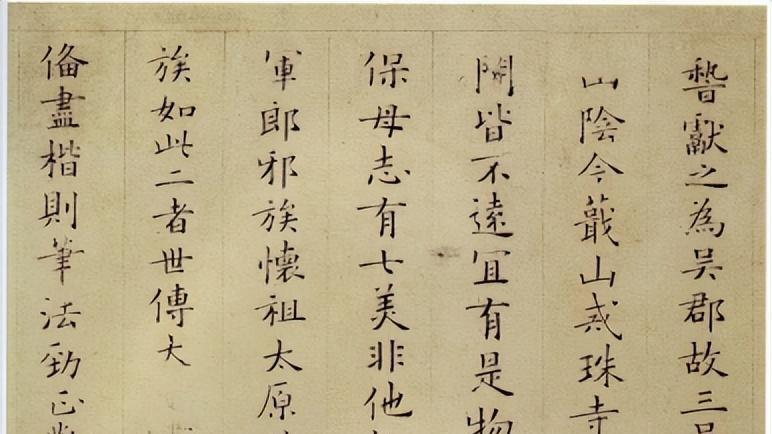 獻之為吳郡故三
山陰今蕺山戒珠寺
閒皆不遠宜有是物
保母志有七美非他
軍郎邪族懷祖太原
族如此二者世傳大
俻盡楷則筆法勁正